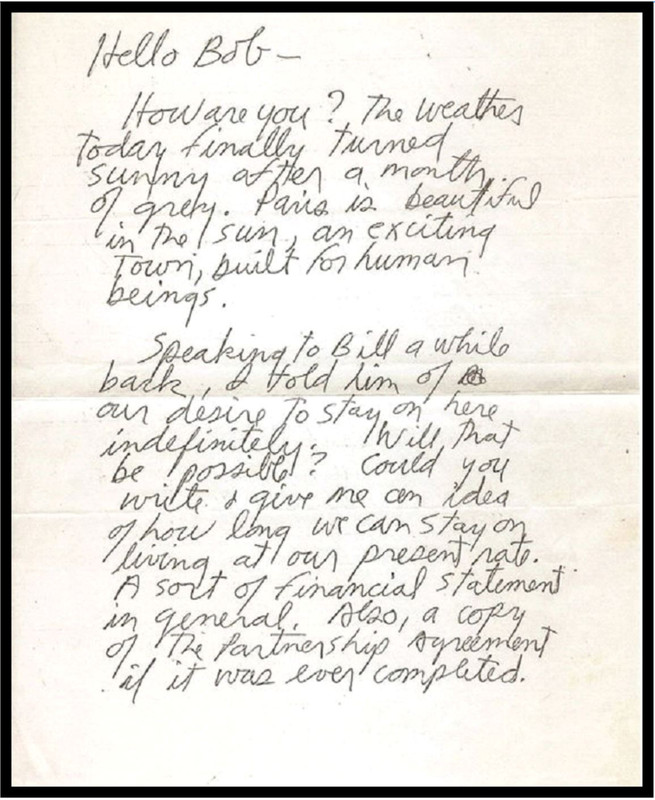 Hello Bob —
How are you? The weather
today finally turned
sunny after a month
of grey. Paris is beautiful
in the sun, an exciting
town, built for human
beings.
Speaking to Bill a while
back, I told him of
our desire to stay on here
indefinitely. Will that
be possible? Could you
write & give me an idea
of how long we can stay on
living at our present rate.
A sort of financial statement
in general. Also, a copy
of the Partnership Agreement
if it was ever completed.